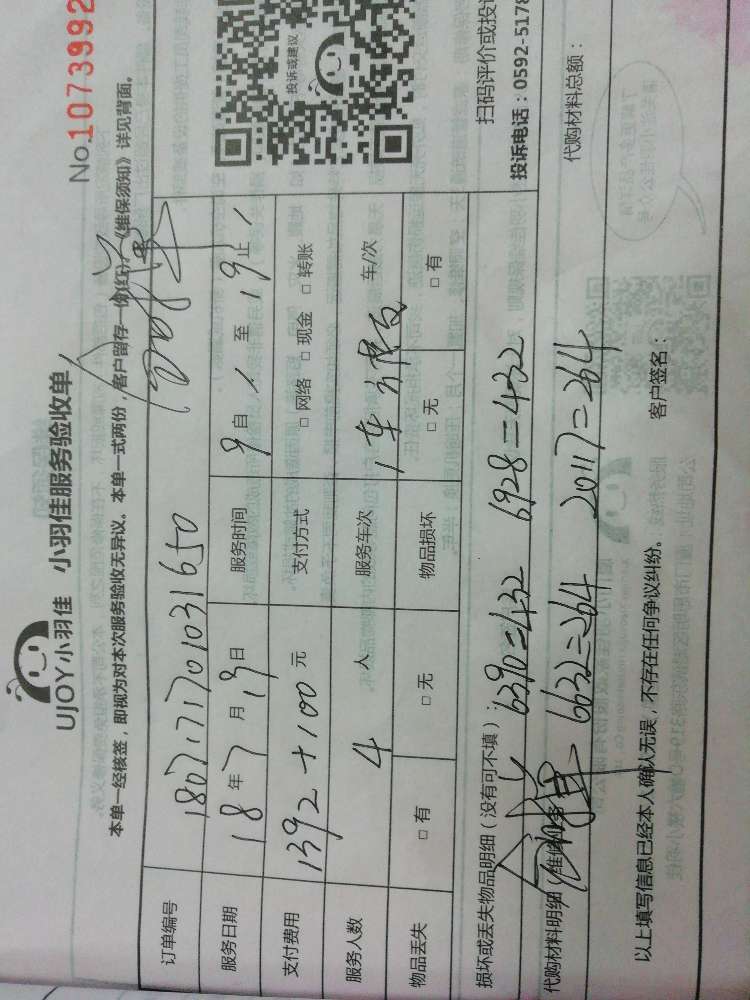 UJOY小羽佳 小羽佳服务验收单
No.1073992
本单一经核签，即视为对本次服务验收无异议。本单一式两份，客户留存一份(红)，《维保须知》详见背面。
订单编号
服务日期 18年7月19日 服务时间 9自 至19止
支付费用 1392+100元 支付方式 □网络 □现金 □转账
服务人数 4人 服务车次 1车 车/次
物品丢失 □有 □无 物品损坏 □无 □有
投诉或建议
扫码评价或投
投诉电话：0592-5178
损坏或丢失物品明细（没有可不填）：
6390=432 6928=432
代购材料明细（维修业务 代购材料总额：
6632=264 20117=264
以上填写信息已经本人确认无误，不存在任何争议纠纷。 客户签名：